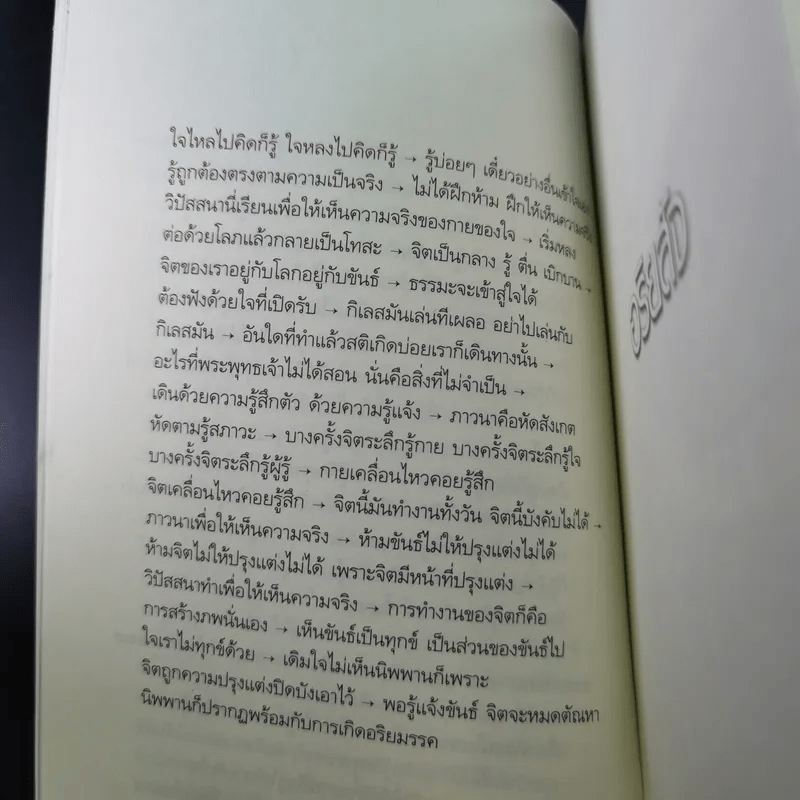 ใจไหลไปคิดก็รู้ ใจหลงไปคิดก็รู้ → รู้บ่อยๆ เดี๋ยวอย่างอื่นเข้าใจเอง
รู้ถูกต้องตรงตามความเป็นจริง → ไม่ได้ฝึกห้าม ฝึกให้เห็นความจริง
วิปัสสนานี่เรียนเพื่อให้เห็นความจริงของกายของใจ → เริ่มหลง
ต่อด้วยโลภแล้วกลายเป็นโทสะ → จิตเป็นกลาง รู้ ตื่น เบิกบาน →
จิตของเราอยู่กับโลกอยู่กับขันธ์ → ธรรมะจะเข้าสู่ใจได้
ต้องฟังด้วยใจที่เปิดรับ → กิเลสมันเล่นทีเผลอ อย่าไปเล่นกับ
กิเลสมัน → อันใดที่ทำแล้วสติเกิดบ่อยเราก็เดินทางนั้น →
อะไรที่พระพุทธเจ้าไม่ได้สอน นั่นคือสิ่งที่ไม่จำเป็น →
เดินด้วยความรู้สึกตัว ด้วยความรู้แจ้ง → ภาวนาคือหัดสังเกต
หัดตามรู้สภาวะ → บางครั้งจิตระลึกรู้กาย บางครั้งจิตระลึกรู้ใจ
บางครั้งจิตระลึกรู้ผู้รู้ → กายเคลื่อนไหวคอยรู้สึก
จิตเคลื่อนไหวคอยรู้สึก → จิตนี้มันทำงานทั้งวัน จิตนี้บังคับไม่ได้ →
ภาวนาเพื่อให้เห็นความจริง → ห้ามขันธ์ไม่ให้ปรุงแต่งไม่ได้
ห้ามจิตไม่ให้ปรุงแต่งไม่ได้ เพราะจิตมีหน้าที่ปรุงแต่ง →
วิปัสสนาทำเพื่อให้เห็นความจริง → การทำงานของจิตก็คือ
การสร้างภพนั่นเอง → เห็นขันธ์เป็นทุกข์ เป็นส่วนของขันธ์ไป
ใจเราไม่ทุกข์ด้วย → เดิมใจไม่เห็นนิพพานก็เพราะ
จิตถูกความปรุงแต่งปิดบังเอาไว้ → พอรู้แจ้งขันธ์ จิตจะหมดตัณหา
นิพพานก็ปรากฏพร้อมกับการเกิดอริยมรรค
อริยสัจ